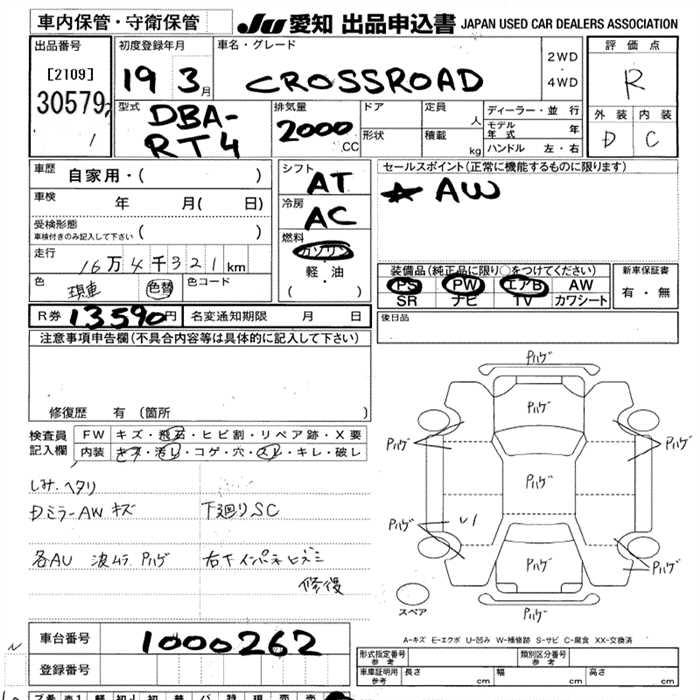 車内保管・守衛保管
JU 愛知 出品申込書 JAPAN USED CAR DEALERS ASSOCIATION
出品番号 初度登録年月 車名・グレード 評価点
[2109] 19 3月 CROSSROAD 2WD・4WD R
30579
1
外装 内装
D C
型式 DBA-RT4 排気量 2000 CC ドア 定員 人 ディーラー・並行
形状 積載 kg モデル年式 年
ハンドル 左・右
車歴 自家用・( ) シフト AT セールスポイント(正常に機能するものに限ります)
★ AW
車検 年 月( 日) 冷房 AC
受検形態 ( )
車検付きのみ記入して下さい
燃料 ガソリン
軽・油
・( )
走行 16万4千321km
色 現車 色替 色コード
装備品(純正品に限り○をつけてください) 新車保証書
PS PW エアB AW 有・無
SR ナビ TV カワシート
R券 13590円 名変通知期限 月 日
後日品
注意事項申告欄(不具合内容等は具体的に記入して下さい)
修復歴 有 (箇所 )
検査員記入欄
FW キズ・飛石・ヒビ割・リペア跡・X要
内装 キズ・汚レ・コゲ・穴・スレ・キレ・破レ
しみ.ヘタリ
Dミラー AW キズ 下廻りSC
各AU 波ムラ Pハゲ 右下インパネヒズミ
修復
Pハゲ
Pハゲ
Pハゲ Pハゲ
Pハゲ
Pハゲ
Pハゲ Pハゲ
Pハゲ
スペア
A-キズ E-エクボ U-凹み W-補修跡 S-サビ C-腐食 XX-交換済
車台番号 1000262
登録番号
形式指定番号 参考 類別区分番号 参考
車庫証明用 参考 長さ cm 幅 cm 高さ cm